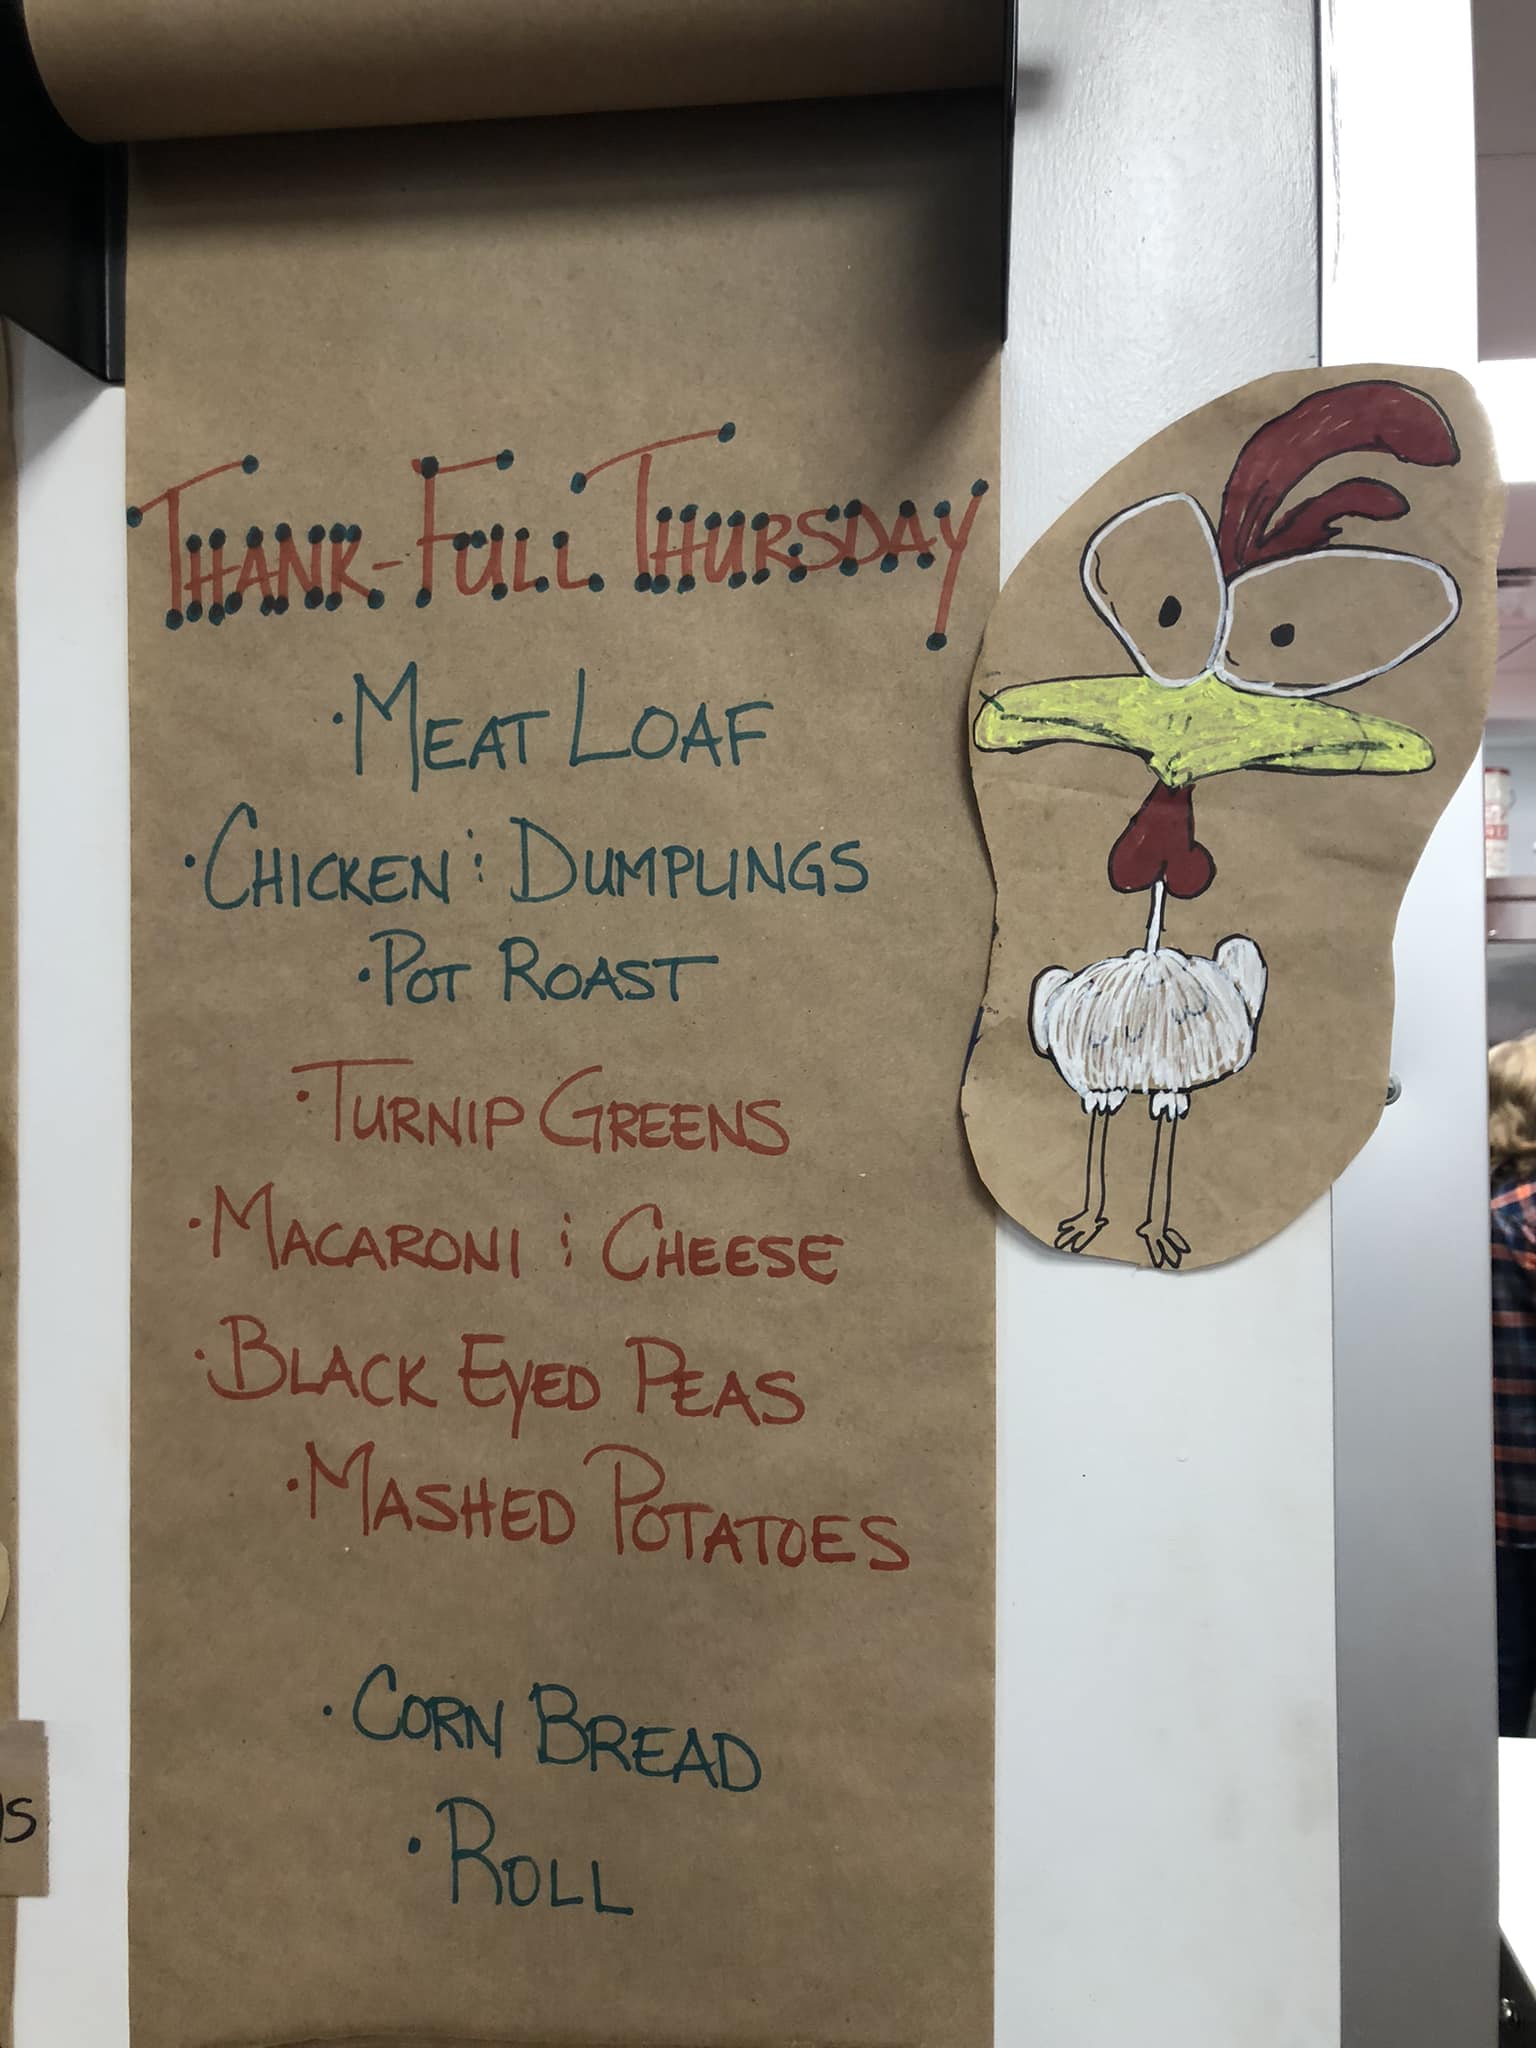 THANK-FULL THURSDAY
·MEAT LOAF
·CHICKEN & DUMPLINGS
·POT ROAST
·TURNIP GREENS
·MACARONI & CHEESE
·BLACK EYED PEAS
·MASHED POTATOES
·CORN BREAD
·ROLL